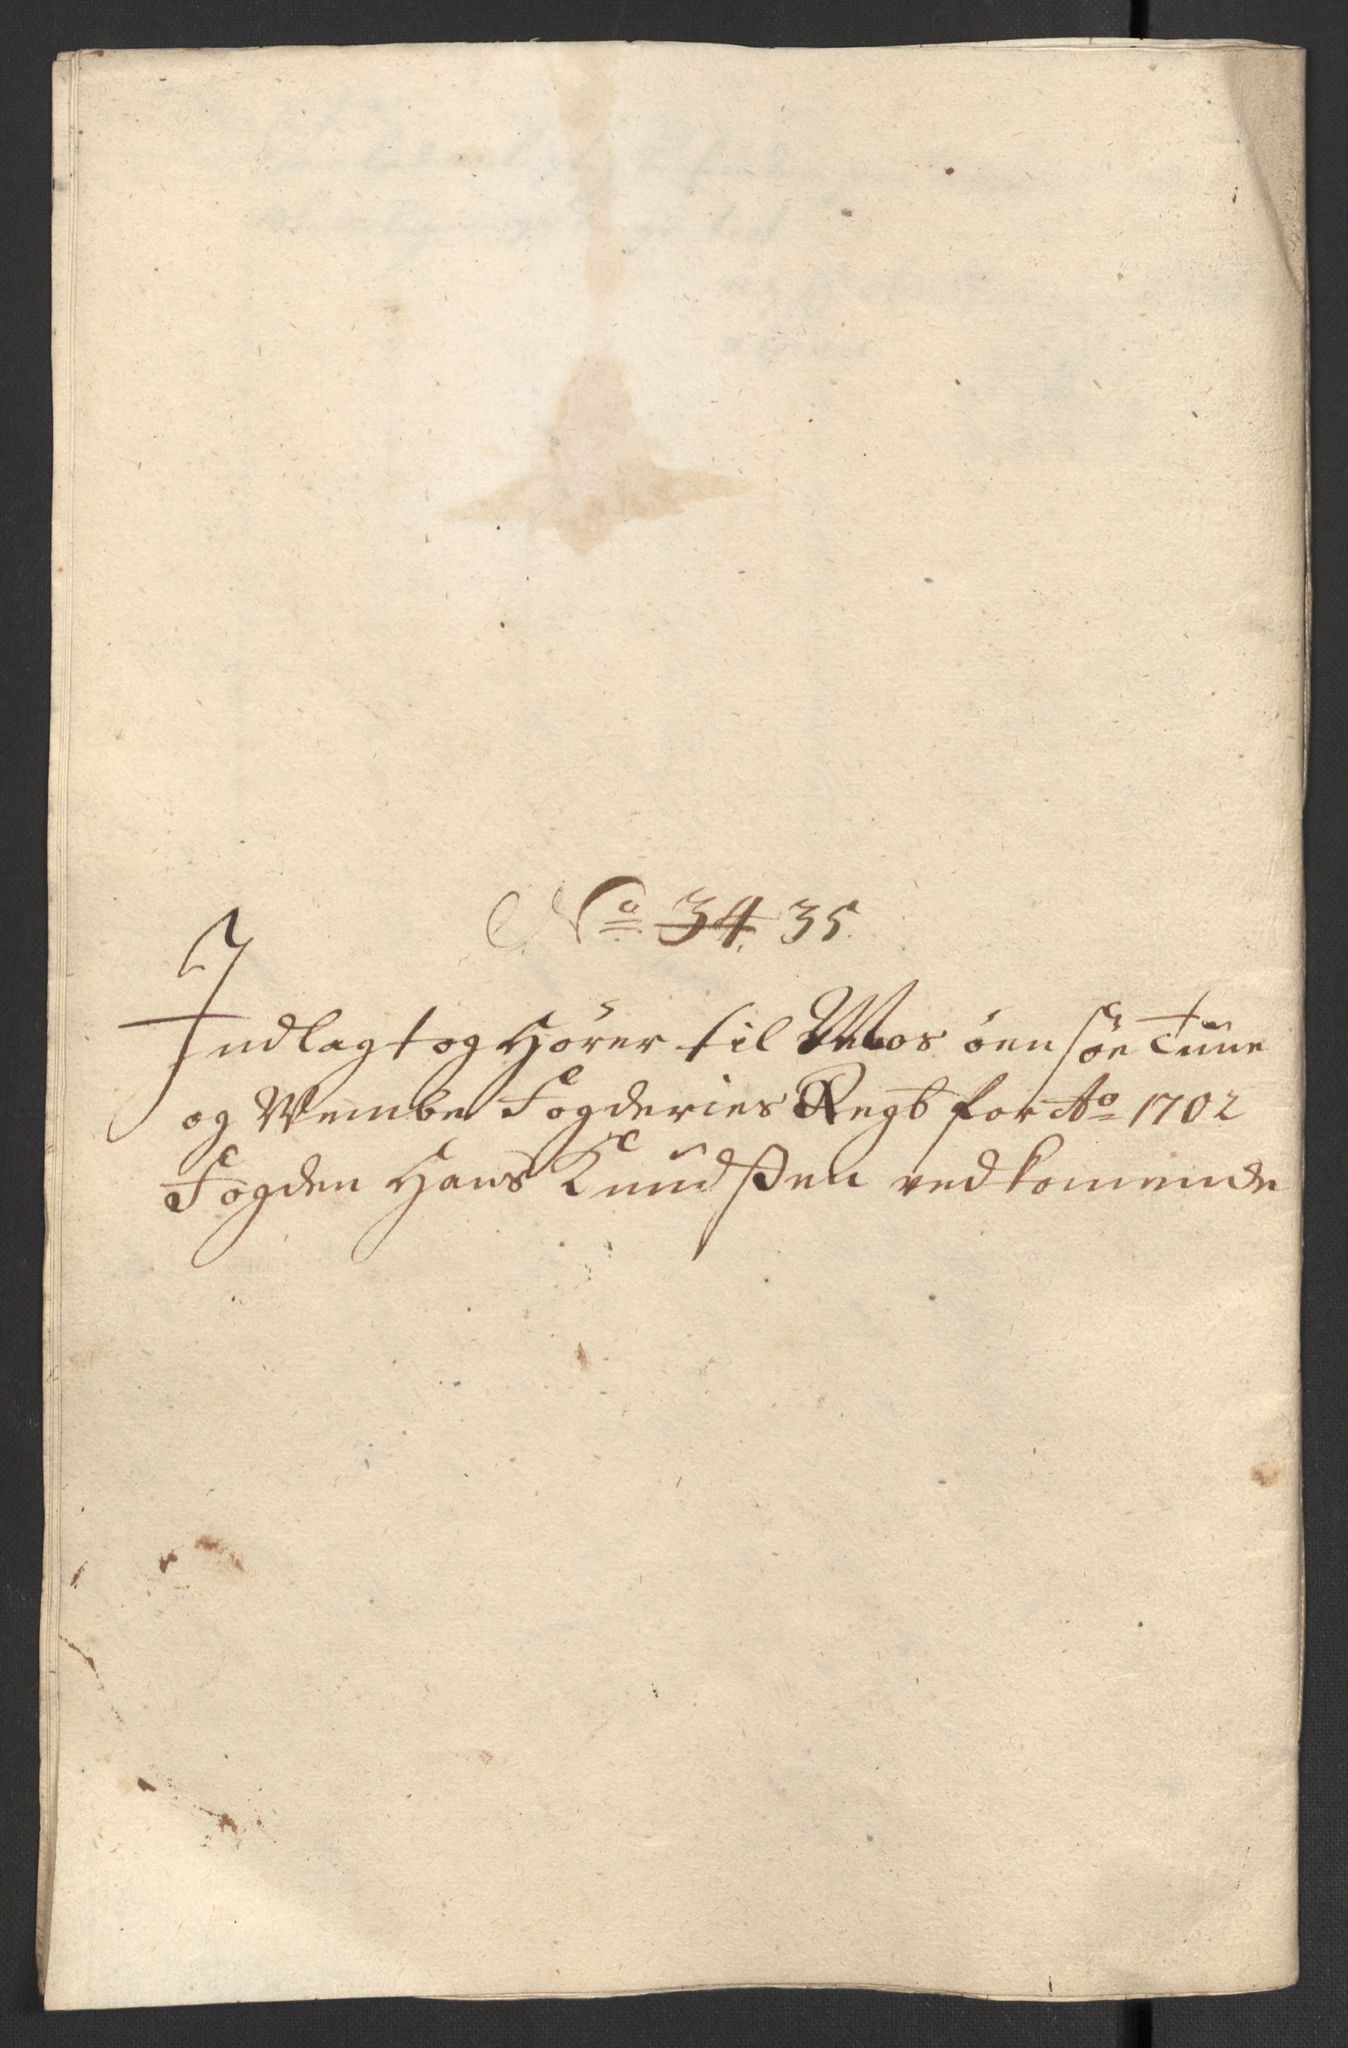 No 34. 35.
Indlagt og Hører til Mos. öen söe Tune
og Wembe Fogderies Regb for Ao 1702
Fogden Hans Knudssen vedkomende